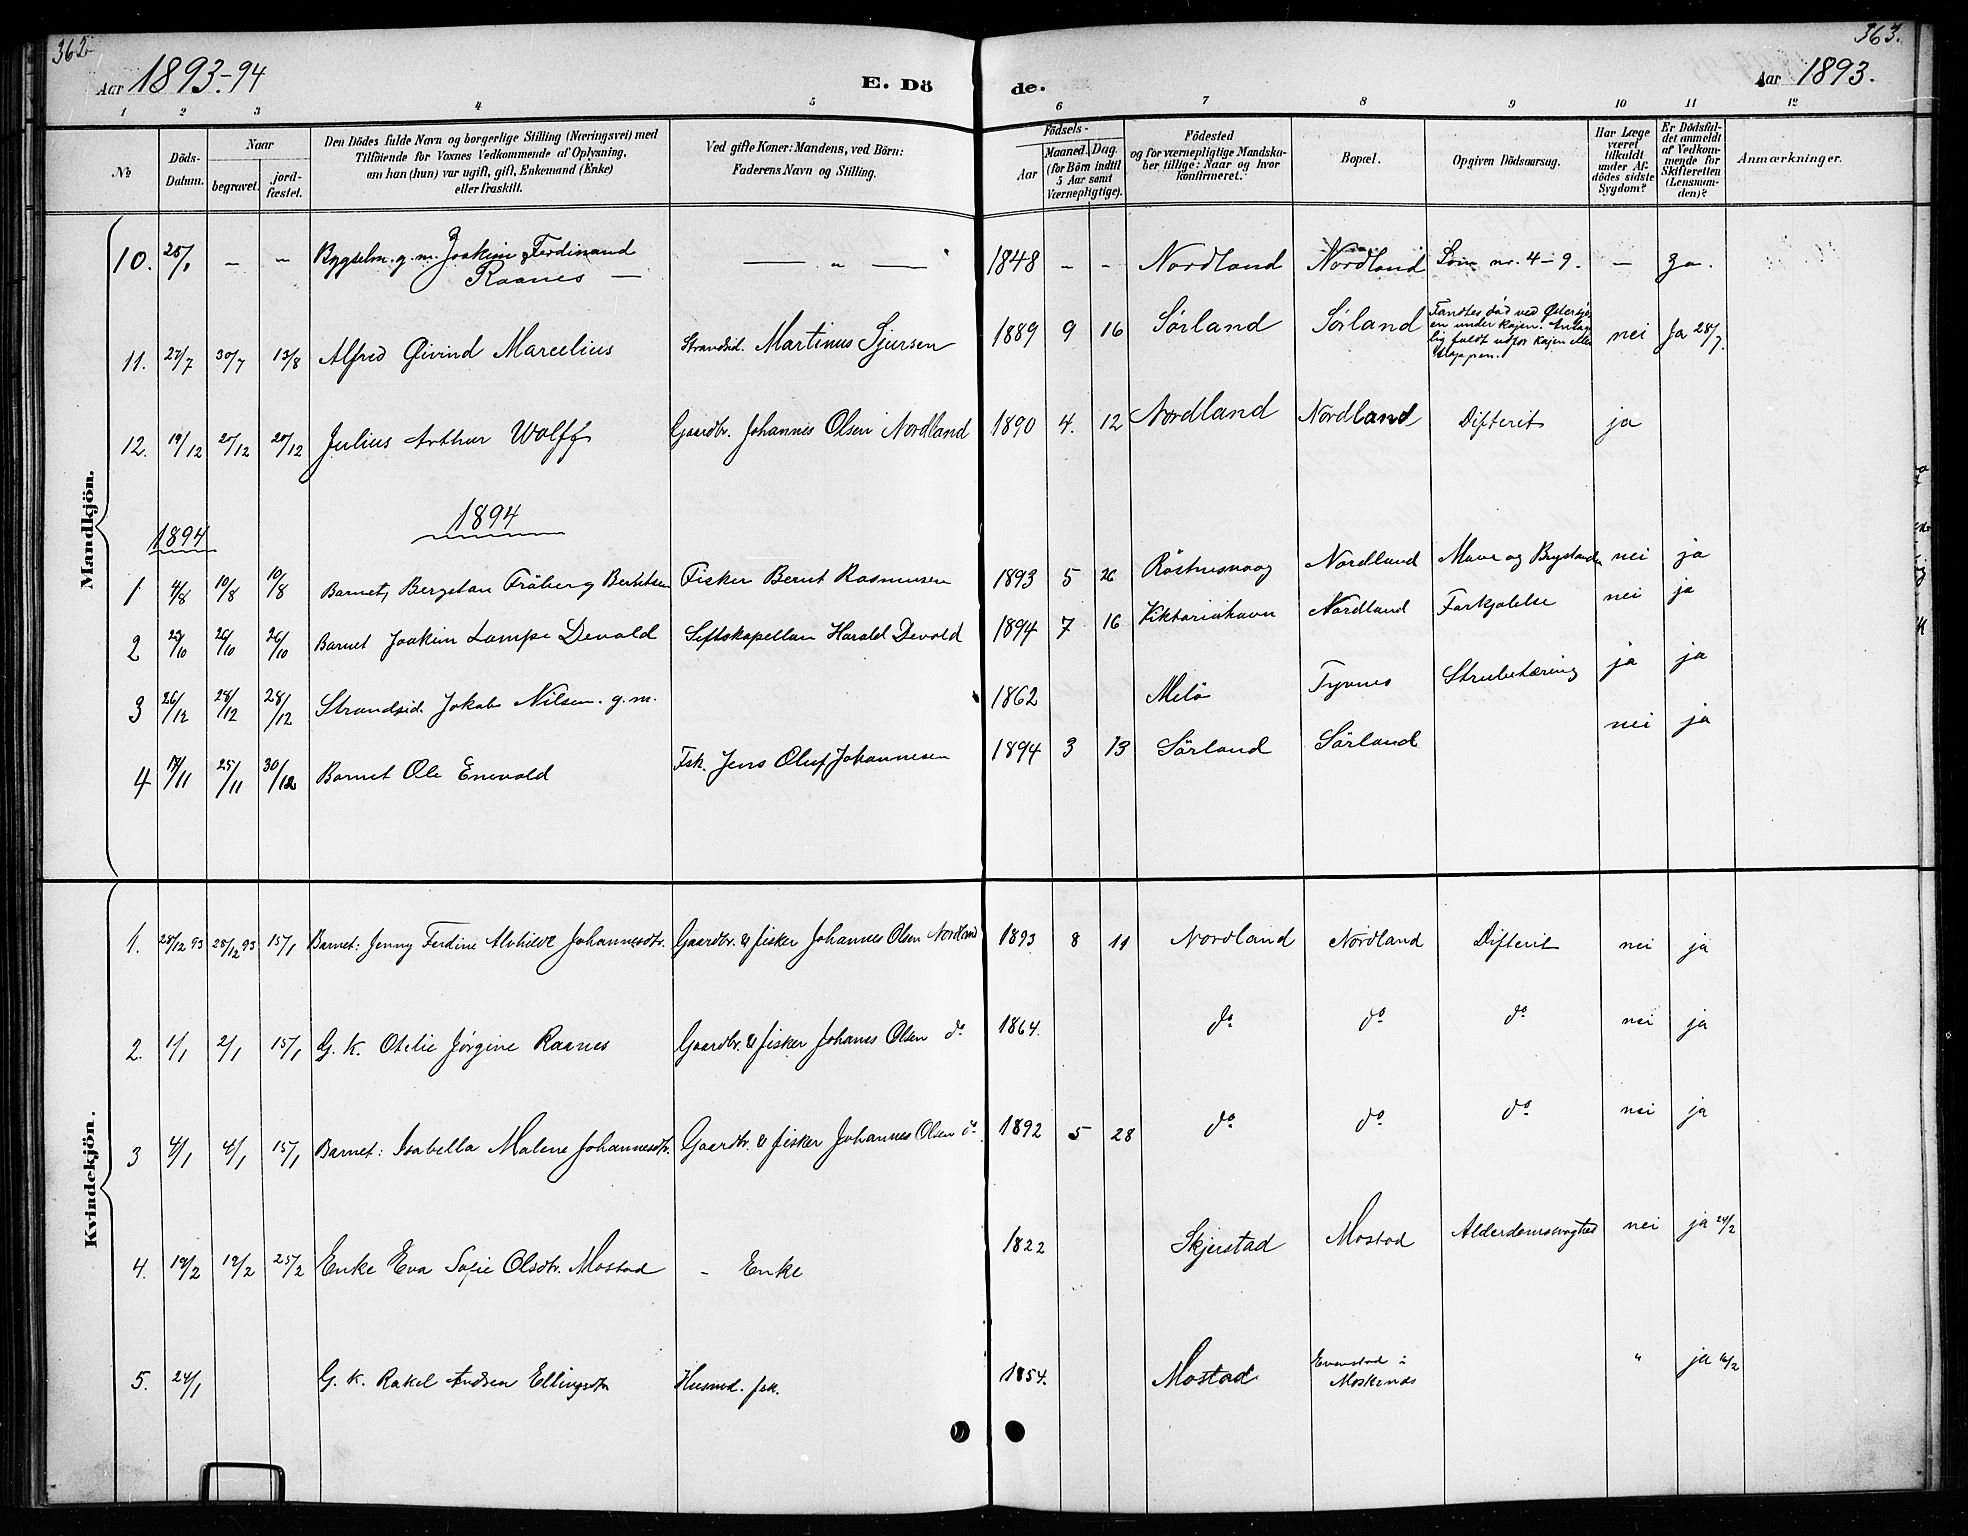 362
363.
Aar 1893-94
E. Dö
de.
Aar 1893.
1 2 3 4 5 6 7 8 9 10 11 12
No
Döds-Datum.
Naar
begravet.
jordfæstet.
Den Dödes fulde Navn og borgerlige Stilling (Næringsvei) med
Tilföiende for Voxnes Vedkommende af Oplysning,
om han (hun) var ugift, gift, Enkemand (Enke)
eller fraskilt.
Ved gifte Koner: Mandens, ved Börn:
Faderens Navn og Stilling.
Födsels-
Aar
Maaned. Dag.
(for Börn indtil
5 Aar samt
Værnepligtige).
Födested
og for værnepligtige Mandska-
ber tillige: Naar og hvor
konfirmeret.
Bopæl.
Opgiven Dödsaarsag.
Har Læge
været
tilkaldt
under Af-
dödes sidste
Sygdom?
Er Dödsfal-
det anmeldt
af Vedkom-
mende for
Skifteretten
(Lensman-
den)?
Anmærkninger.
Mandkjön.
10. 25/1 - - Bygselm. g. m. Joakim Ferdinand
Raanes — — „ — 1848 - - Nordland Nordland Som nr. 4-9. - Ja.
11. 27/7 30/7 13/8 Alfred Øivind Marcelius Strandsid. Martinus Sjursen 1889 9 16 Sørland Sørland Fandtes død ved
under kajen.
lig faldt udfor kajen eller
nei Ja 28/7.
12. 19/12 27/12 27/12 Julius Arthur Wolff Gaardbr. Johannes Olsen Nordland 1890 4. 12 Nordland Nordland Difterit ja
1894
1894
1 4/8 10/8 10/8 Barnet, Bergstan Fröberg Berntsen Fisker Bernt Rasmusen 1893 5 26 Röstnesvaag Nordland Mave og nei ja
2 25/10 26/10 26/10 Barnet Joakim Lampe Devold Siftskapellan Harald Devold 1894 7 16 Viktoriahavn Nordland Forkjølelse nei ja
3 26/12 28/12 28/12 Strandsid. Jakob Nilsen. g. m. 1862 Melö Tyvnes Strubetæring ja ja
4 17/11 25/11 30/12 Barnet Ole Enevold Fsk. Jens Oluf Johannesen 1894 3 13 Sörland Sörland nei ja
Kvindekjön.
1. 25/12 93 28/12 93 15/1 Barnet: Jenny Ferdine Alvhilde Johannesdtr. Gaardbr. & fisker Johannes Olsen Nordland 1893 8 11 Nordland Nordland Difterit nei ja
2. 1/1 2/1 15/1 G. K. Otelie Jörgine Raanes Gaardbr. & fisker Johanes Olsen do 1864. do do do nei ja
3 4/1 4/1 15/1 Barnet: Isabella Malene Johannesdtr. Gaardbr. & fisker Johannes Olsen do 1892 5 28 do do do nei ja
4. 19/2 19/2 25/2 Enke Eva Sofie Olsdtr. Mostad - Enke 1822 Skjerstad Mostad nei ja 24/2
5. 24/1 G. K. Rakel Andrea Ellingsdtr Husmd. fsk. 1854. Mostad Evenstad i
Moskenes „ ja 16/2